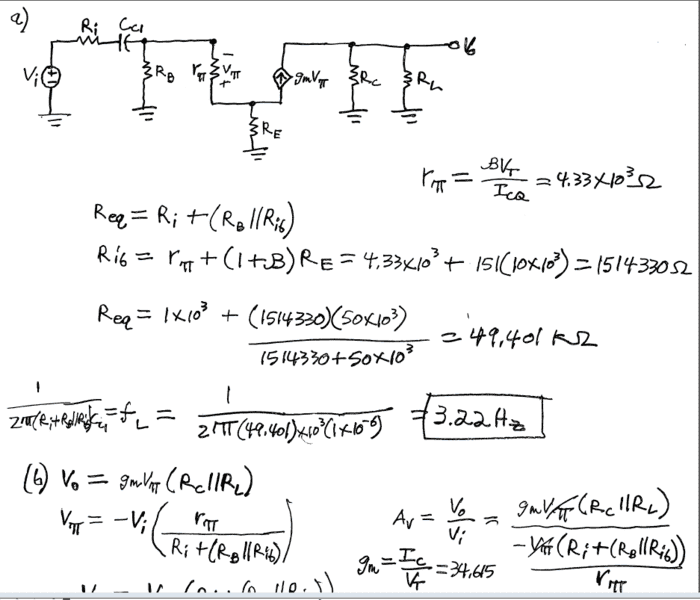 a)
Ri Cc1
Vi RB rπ − Vπ + gmVπ RC RL Vo
RE
rπ = βVT / ICQ = 4.33×10³ Ω
Req = Ri + (RB || Rib)
Rib = rπ + (1+β) RE = 4.33×10³ + 151(10×10³) = 1514330 Ω
Req = 1×10³ + (1514330)(50×10³) / 1514330+50×10³ = 49.401 kΩ
1 / 2π(Ri+RB||Rib) = fL = 1 / 2π(49.401)×10³(1×10⁻⁶) = 3.22 Hz
(b) Vo = gmVπ (RC||RL)
Vπ = −Vi ( rπ / Ri + (RB||Rib) )
Av = Vo / Vi = gmVπ (RC||RL) / −Vπ (Ri+(RB||Rib)) / rπ
gm = IC / VT = 34.615